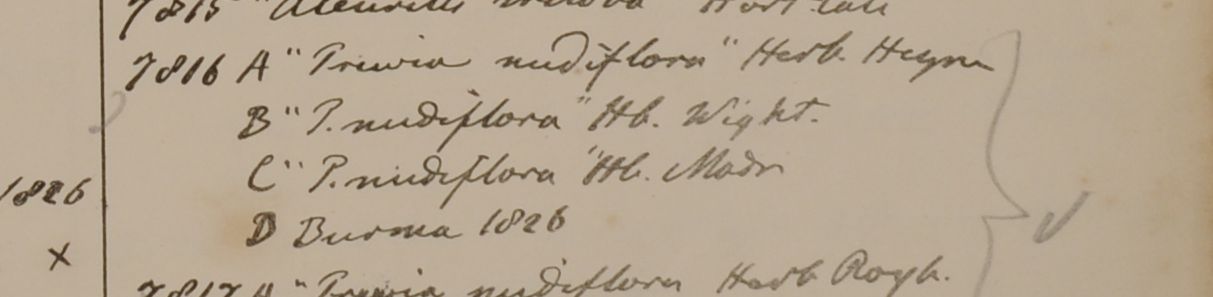 7815 "Aleurites triloba" Hort. Calc
7816 A "Trewia nudiflora" Herb. Heyne
B "T. nudiflora" Hb. Wight.
C "T. nudiflora" Hb. Madr
1826
D Burma 1826
x
7817 A "Trewia nudiflora Herb Roxb.